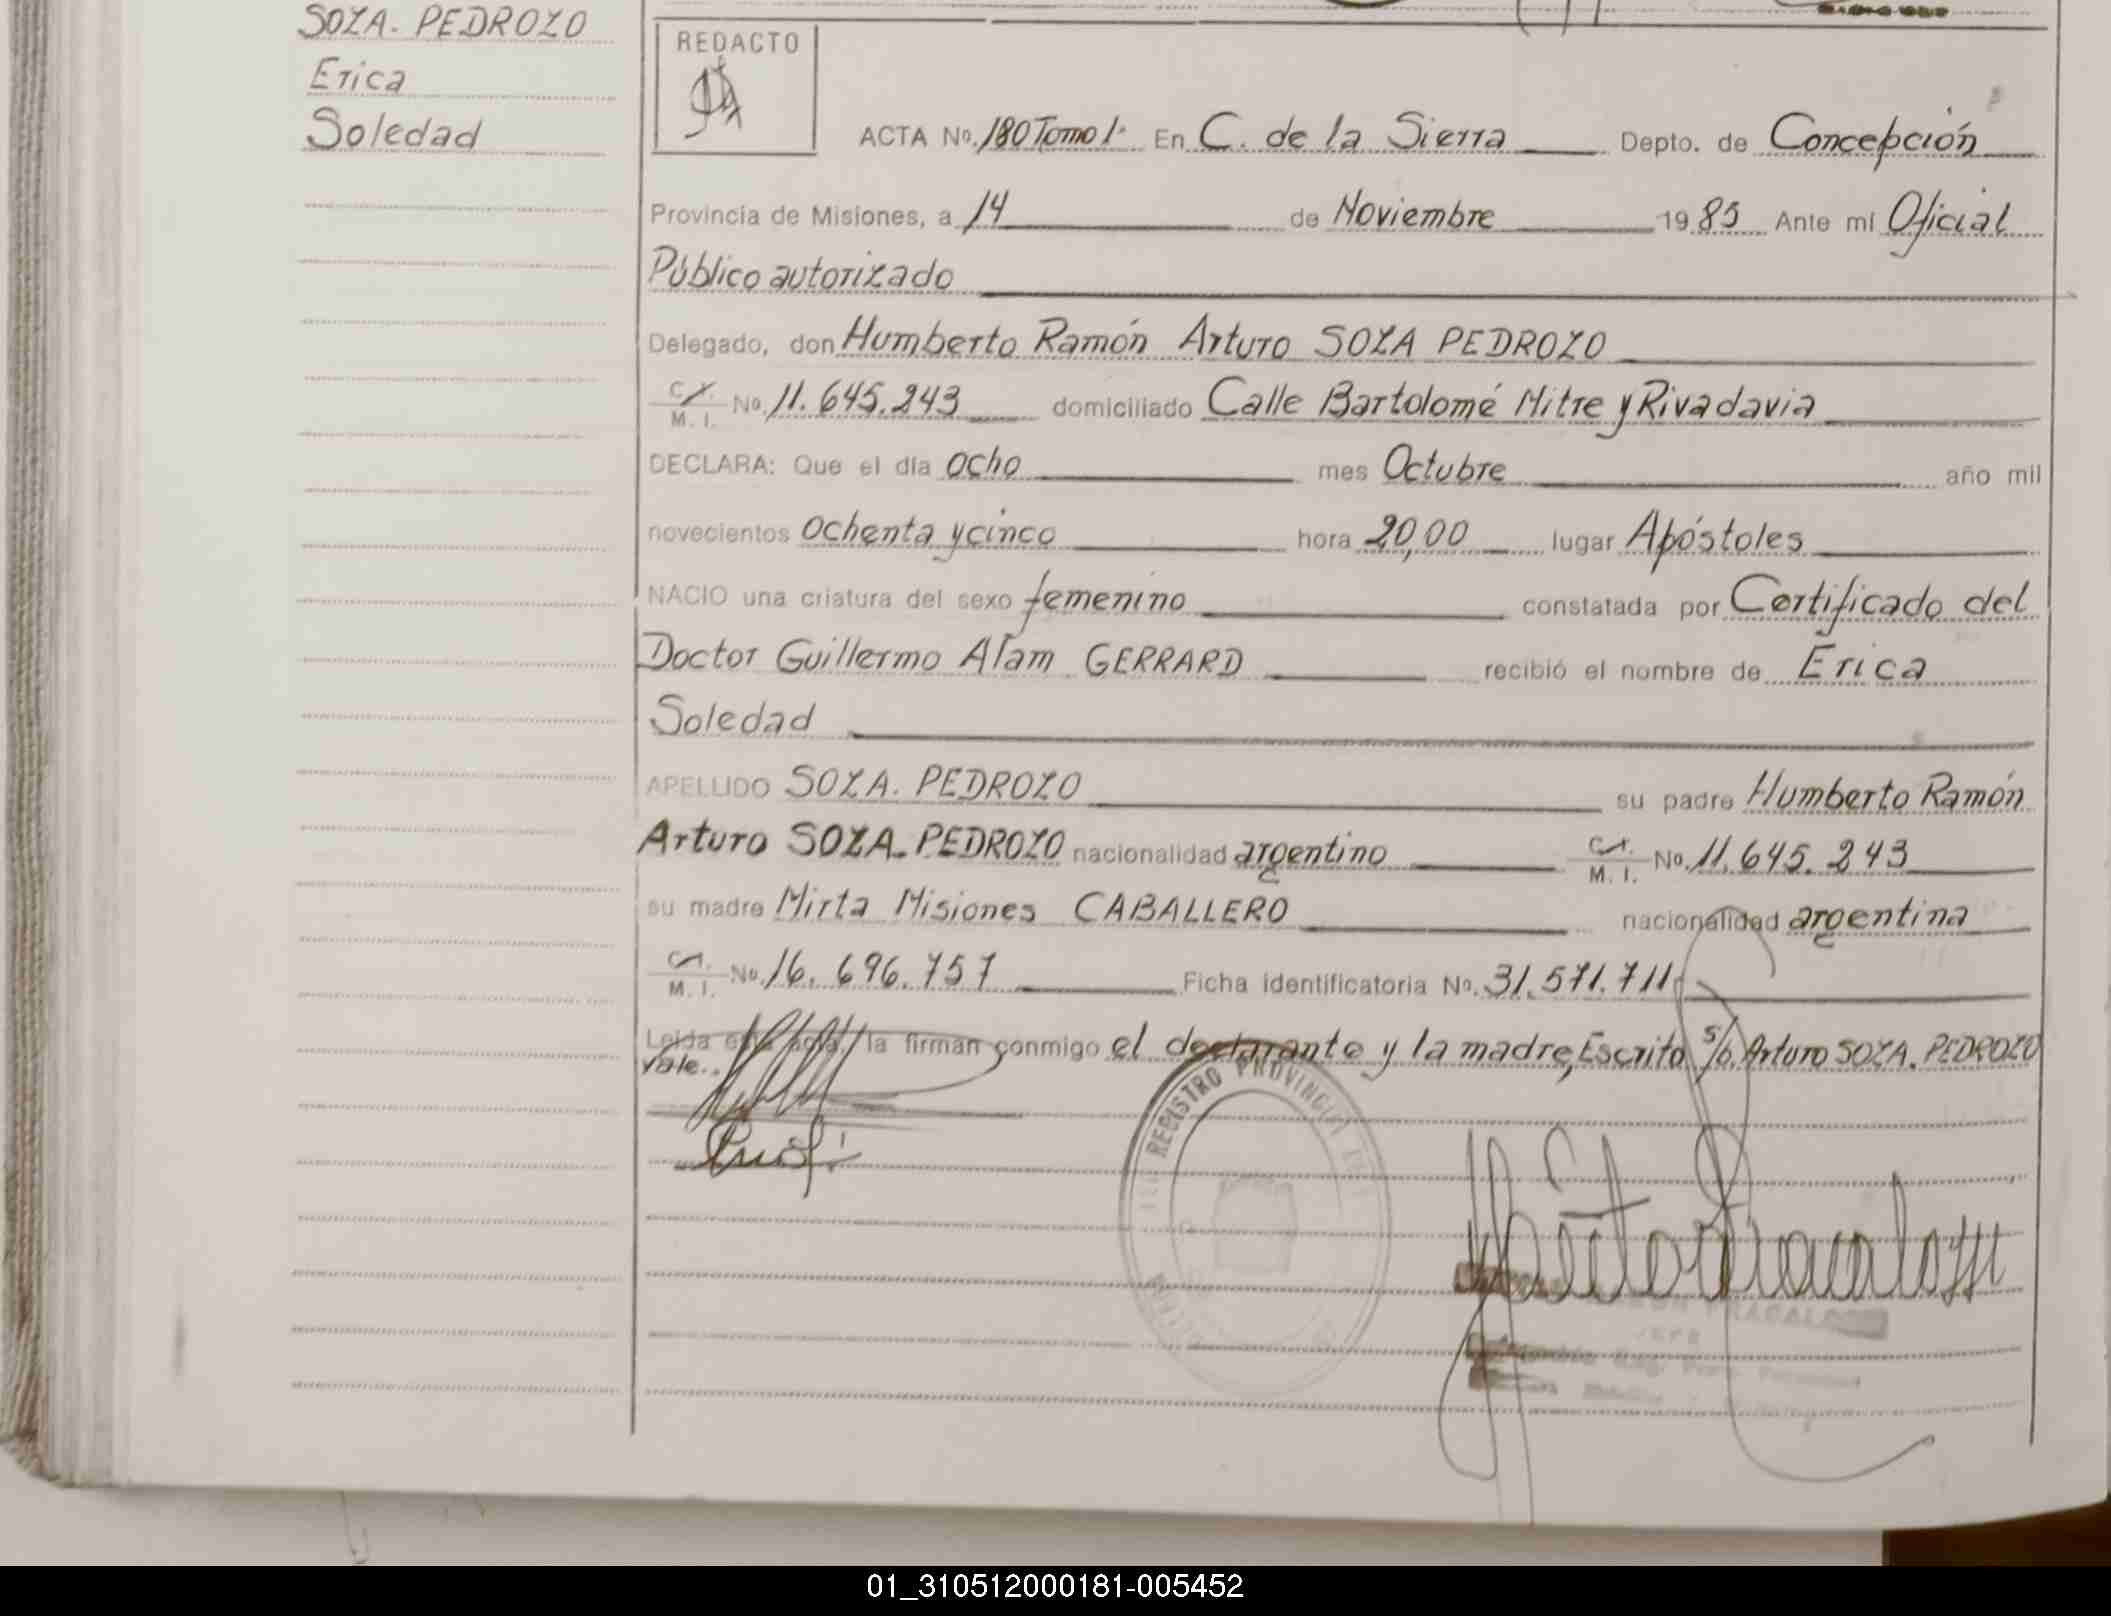 SOZA. PEDROZO
Erica
Soledad
REDACTO
ACTA No. 180 Tomo 1º En C. de la Sierra Depto. de Concepción
Provincia de Misiones, a 14 de Noviembre 1985 Ante mí Oficial
Público autorizado
Delegado, don Humberto Ramón Arturo SOZA PEDROZO
C.I. M. I. No. 11.645.243 domiciliado Calle Bartolomé Mitre y Rivadavia
DECLARA: Que el día ocho mes Octubre año mil
novecientos ochenta y cinco hora 20,00 lugar Apóstoles
NACIO una criatura del sexo femenino constatada por Certificado del
Doctor Guillermo Alam GERRARD recibió el nombre de Erica
Soledad
APELLIDO SOZA. PEDROZO su padre Humberto Ramón
Arturo SOZA. PEDROZO nacionalidad argentino C.I. M. I. No. 11.645.243
su madre Mirta Misiones CABALLERO nacionalidad argentina
C.I. M. I. No. 16.696.757 Ficha identificatoria No. 31.571.711
Leída esta acta, la firman conmigo el declarante y la madre, Escrito s/b. Arturo SOZA. PEDROZO
Vale..
REGISTRO PROVINCIAL DE
JEFE
01_310512000181-005452